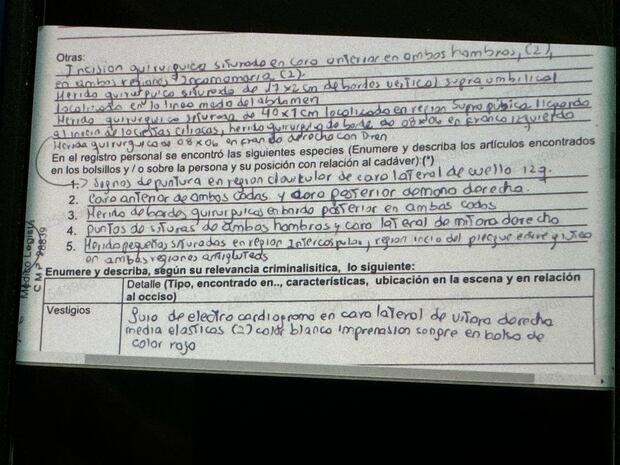 Otras:
Incision quirurquica siturada en cara anterior en ambos hombros, (2),
en ambos regiones Incomamaria (2).
Herida quirurquica siturada de 17x2cm de bordes vertical supra umbilical
localizada en la linea media del abdomen
Herida quirurquica siturada de 40x1cm localizado en region supra pubica llegando
al inicio de crestas ciliacas, herida quirurgica de borde de 08x06 en franco izquierdo
Herida quirurgica de 08x06 en franco derecho con Dren
En el registro personal se encontró las siguientes especies (Enumere y describa los artículos encontrados
en los bolsillos y / o sobre la persona y su posición con relación al cadáver):(*)
1. Signos de puntura en region clavicular de cara lateral de cuello 12q.
2. Cara anterior de ambos codos y doro posterior de mano derecha.
3. Herida de bordes quirurquicos en borde posterior en ambos codos
4. puntos de situras de ambos hombros y cara lateral de mitora derecha
5. Herida pequeña siturados en region Intercospular, region incio del pliegue
en ambas regiones antigluteos
Médico Legista
CMP 28839
Enumere y describa, según su relevancia criminalisitica, lo siguiente:
Detalle (Tipo, encontrado en.., características, ubicación en la escena y en relación
al occiso)
Vestigios
Guia de electro cardiogromo en cara lateral de vitora derecha
media elasticas (2) color blanco imprenasion sangre en bolsa de
color rojo